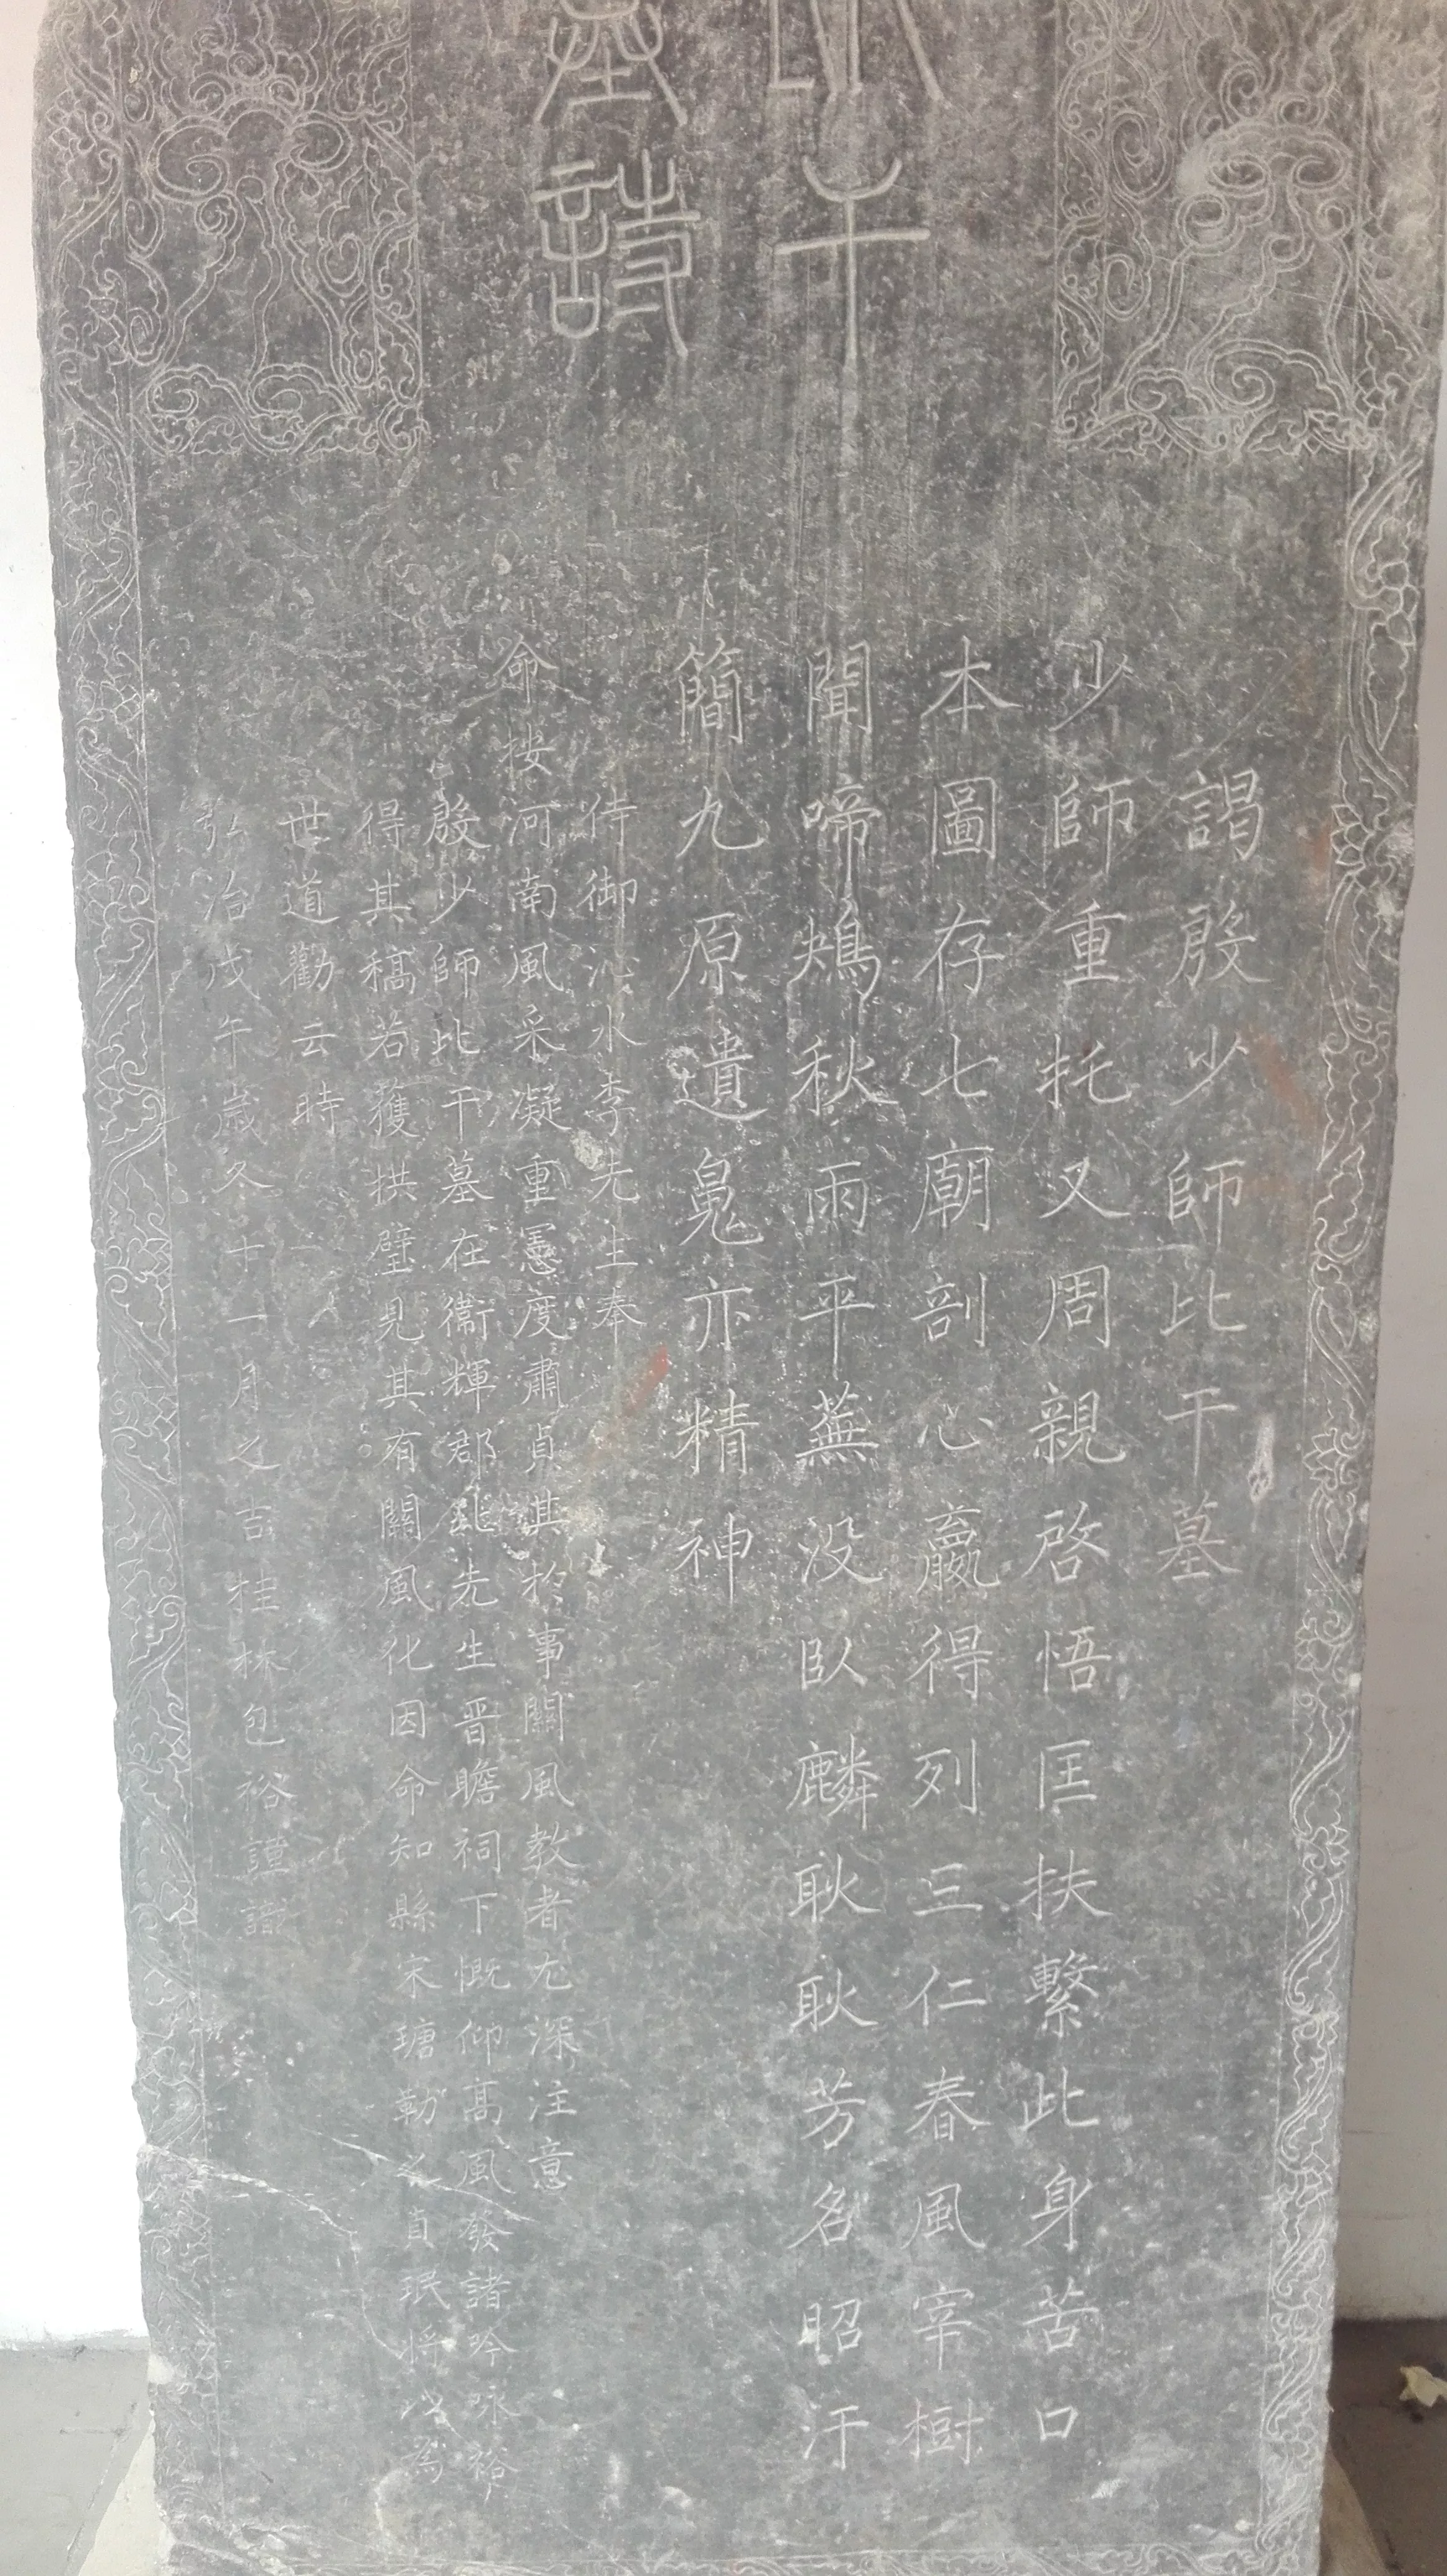 干
墓詩
謁殷少師比干墓
少師重托又周親啓悟匡扶繫此身苦口
本圖存七廟剖心嬴得列三仁春風宰樹
聞啼鴂秋雨平蕪没臥麟耿耿芳名昭汗
簡九原遺䰟亦精神
侍御沁水李先生奉
命按河南風采凝重憲度肅貞其於事關風教者尤深注意
殷少師比干墓在衞輝郡北先生晋瞻祠下慨仰高風發諸吟咏裕
得其稿若獲拱璧見其有關風化因命知縣宋瑭勒之貞珉將以為
世道勸云時
弘治戊午歲冬十一月之吉桂林包裕謹識